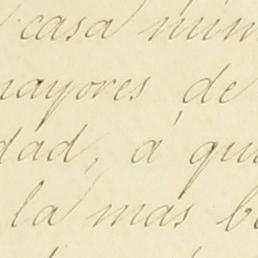 casa min
mayores de
dad, á qui
la mas b